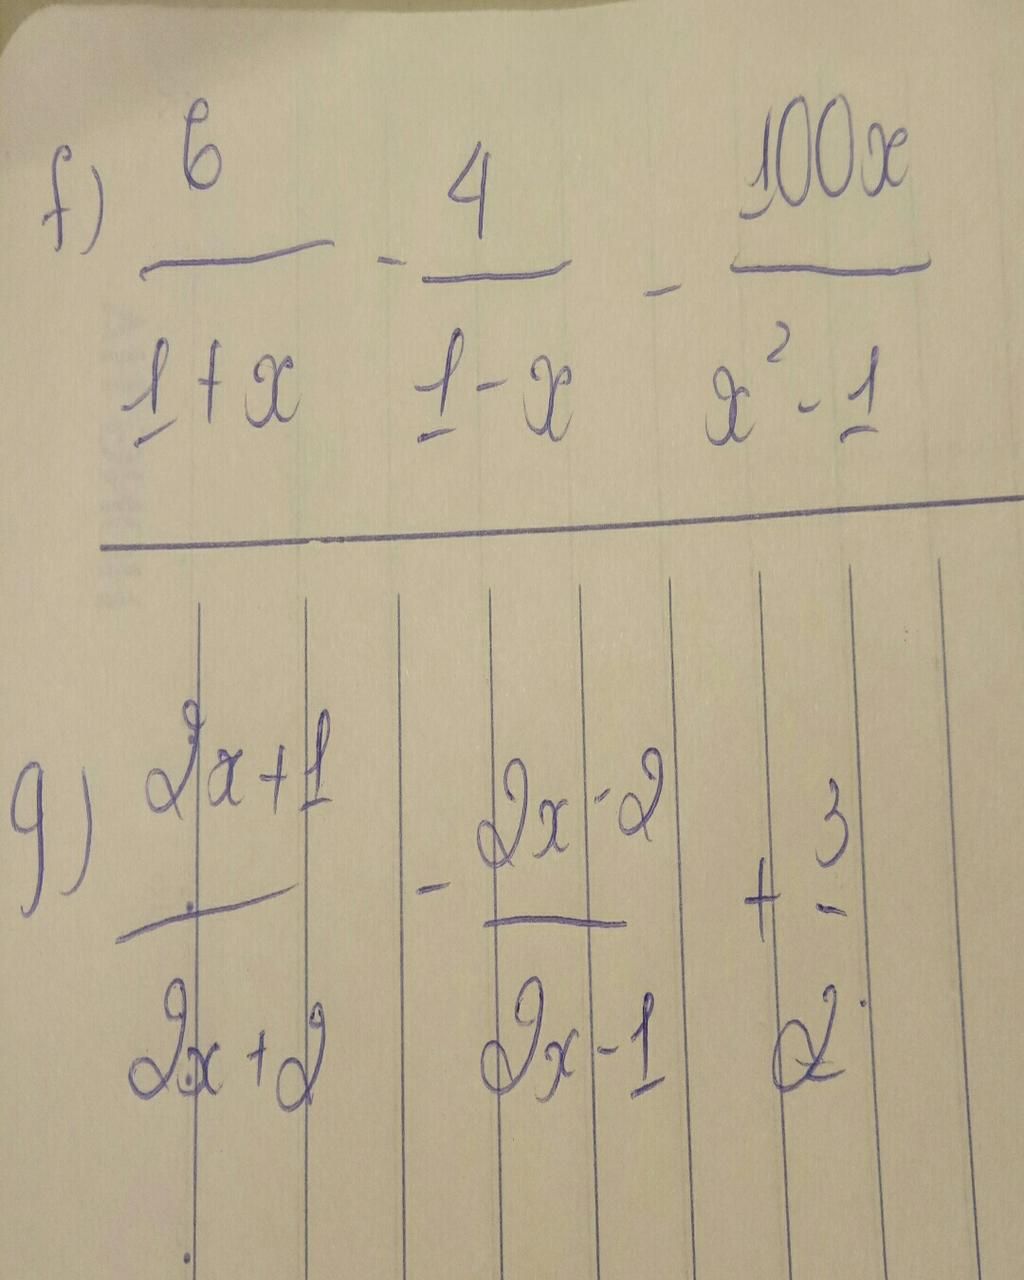 f) 6/(1+x) - 4/(1-x) - 100x/(x²-1)
g) (2x+1)/(2x+2) - (2x-2)/(2x-1) + 3/2